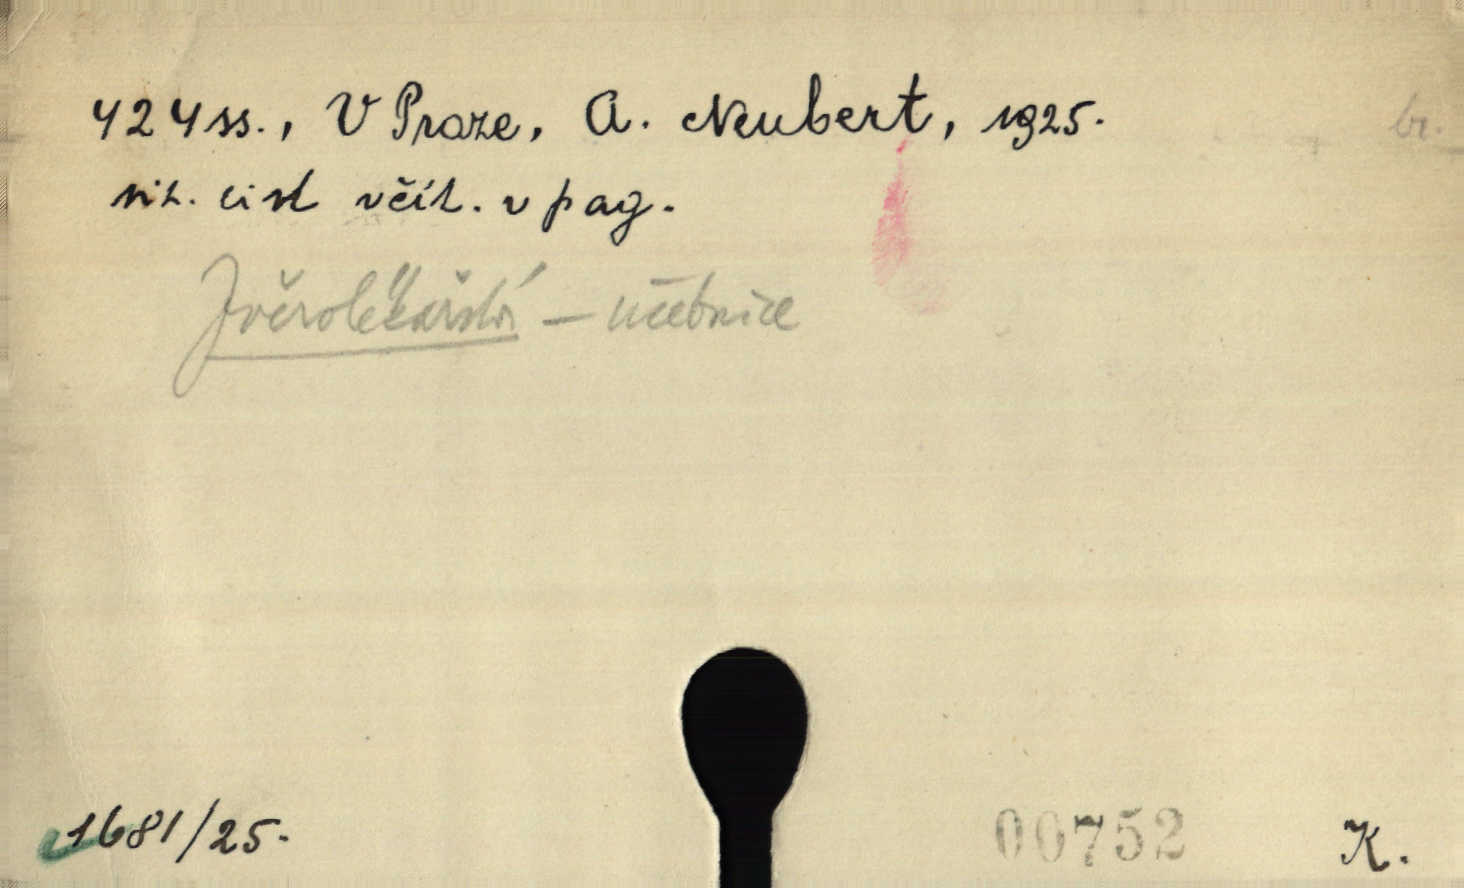 424 ss., V Praze, A. Neubert, 1925.
br.
tit. list včít. v pag.
Zvěrolékařství – učebnice
1681/25.
00752
K.